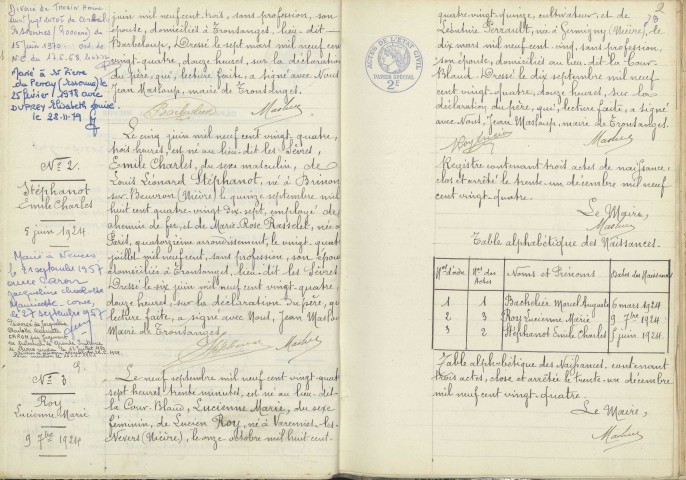 juin mil neuf cent trois, sans profession, son
épouse, domiciliés à Tronsanges, lieu-dit
Barbeloup. Dressé le sept mars mil neuf cent
vingt-quatre, douze heures, sur la déclaration
du père, qui, lecture faite a signé avec Nous
Jean Masloup, maire de Tronsanges.
Marié à St Pierre
le 28-11-79
N° 2.
Stéphanot
Emile Charles
5 juin 1924
Marié à Nevers
le 21 septembre 1957
avec Caron
Jacqueline
le 27 septembre 1957
Le cinq juin mil neuf cent vingt-quatre,
trois heures, est né au lieu-dit les Sèvres
Emile Charles, du sexe masculin, de
Louis Léonard Stéphanot, né à Brinon
sur-Beuvron (Nièvre) le quinze septembre mil
huit cent quatre-vingt dix-sept, employé de
chemin de fer, et de Marie-Rose Rasselet, née à
Paris, quatorzième arrondissement, le vingt-quatre
juillet mil neuf cent, sans profession, son épouse
domiciliés à Tronsanges, lieu-dit les Sèvres
Dressé le six juin mil neuf cent vingt-quatre,
douze heures, sur la déclaration du père, qui
lecture faite, a signé avec Nous, Jean Masloup
Maire de Tronsanges.
N° 3
Roy
Lucienne Marie
9 7bre 1924
Le neuf septembre mil neuf cent vingt-quatre
sept heures trente minutes, est née au lieu-dit
la Cour-Blaud, Lucienne Marie, du sexe
féminin, de Lucien Roy, né à Varennes-les-
Nevers (Nièvre), le onze octobre mil huit cent
2
quatre-vingt-quinze, cultivateur, et de
Perrault, née à Germigny (Nièvre), le
dix mars mil neuf cent cinq, sans profession,
son épouse, domiciliés au lieu-dit la Cour-
Blaud. Dressé le dix septembre mil neuf
cent vingt-quatre, douze heures, sur la
déclaration du père, qui, lecture faite, a signé
avec Nous, Jean Masloup, maire de Tronsanges.
ACTES DE L'ETAT CIVIL
PAPIER SPECIAL
2F
Registre contenant trois actes de naissance,
clos et arrêté le trente-un décembre mil neuf
cent vingt-quatre.
Le Maire,
Table alphabétique des Naissances.
Nos d'ordre Nos des Actes Noms et Prénoms Dates des Naissances
1 1 Bachelier Marcel Auguste 6 mars 1924
2 3 Roy Lucienne Marie 9 7bre 1924
3 2 Stéphanot Emile Charles 5 juin 1924.
Table alphabétique des Naissances, contenant
trois actes, close et arrêtée le trente-un décembre
mil neuf cent vingt-quatre.
Le Maire,